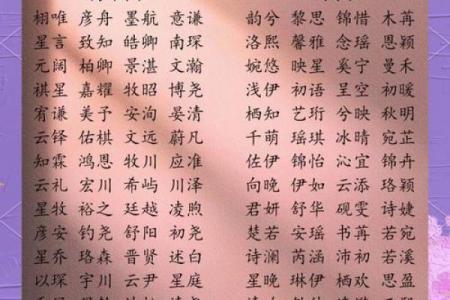 栩唯 彦舟 墨航 意谦 韵兮 黎思 锦惜 木苒
星言 致知 皓卿 南琛 洛熙 馨雅 念瑶 恩颖
元阔 柏卿 景湛 文瀚 婉悠 映星 奚宁 曼禾
祺星 嘉耀 牧昭 博尧 浅伊 初语 星空 初暖
宥谦 美予 安洵 晏清 栖知 艺珩 兮映 秋明
云铎 佑棋 文远 蔚凡 千萌 瑶琪 冰晴 宛芷
知霖 鸿恩 牧川 应准 佐伊 锦怡 沁宜 锦舟
云礼 宏川 希屿 川泽 向晚 伊如 云添 珞颖
星牧 裕之 廷越 凌煦 君妍 舒华 砚雯 诗婕
彦安 钧尧 舒阳 初尧 楚若 安瑶 书苒 若溪
星乔 珞森 晋贤 述白 诗澜 芮涵 沛初 若溪
以琛 宇川 云尹 星庭 星晚 琳伊 栖欢 思盈